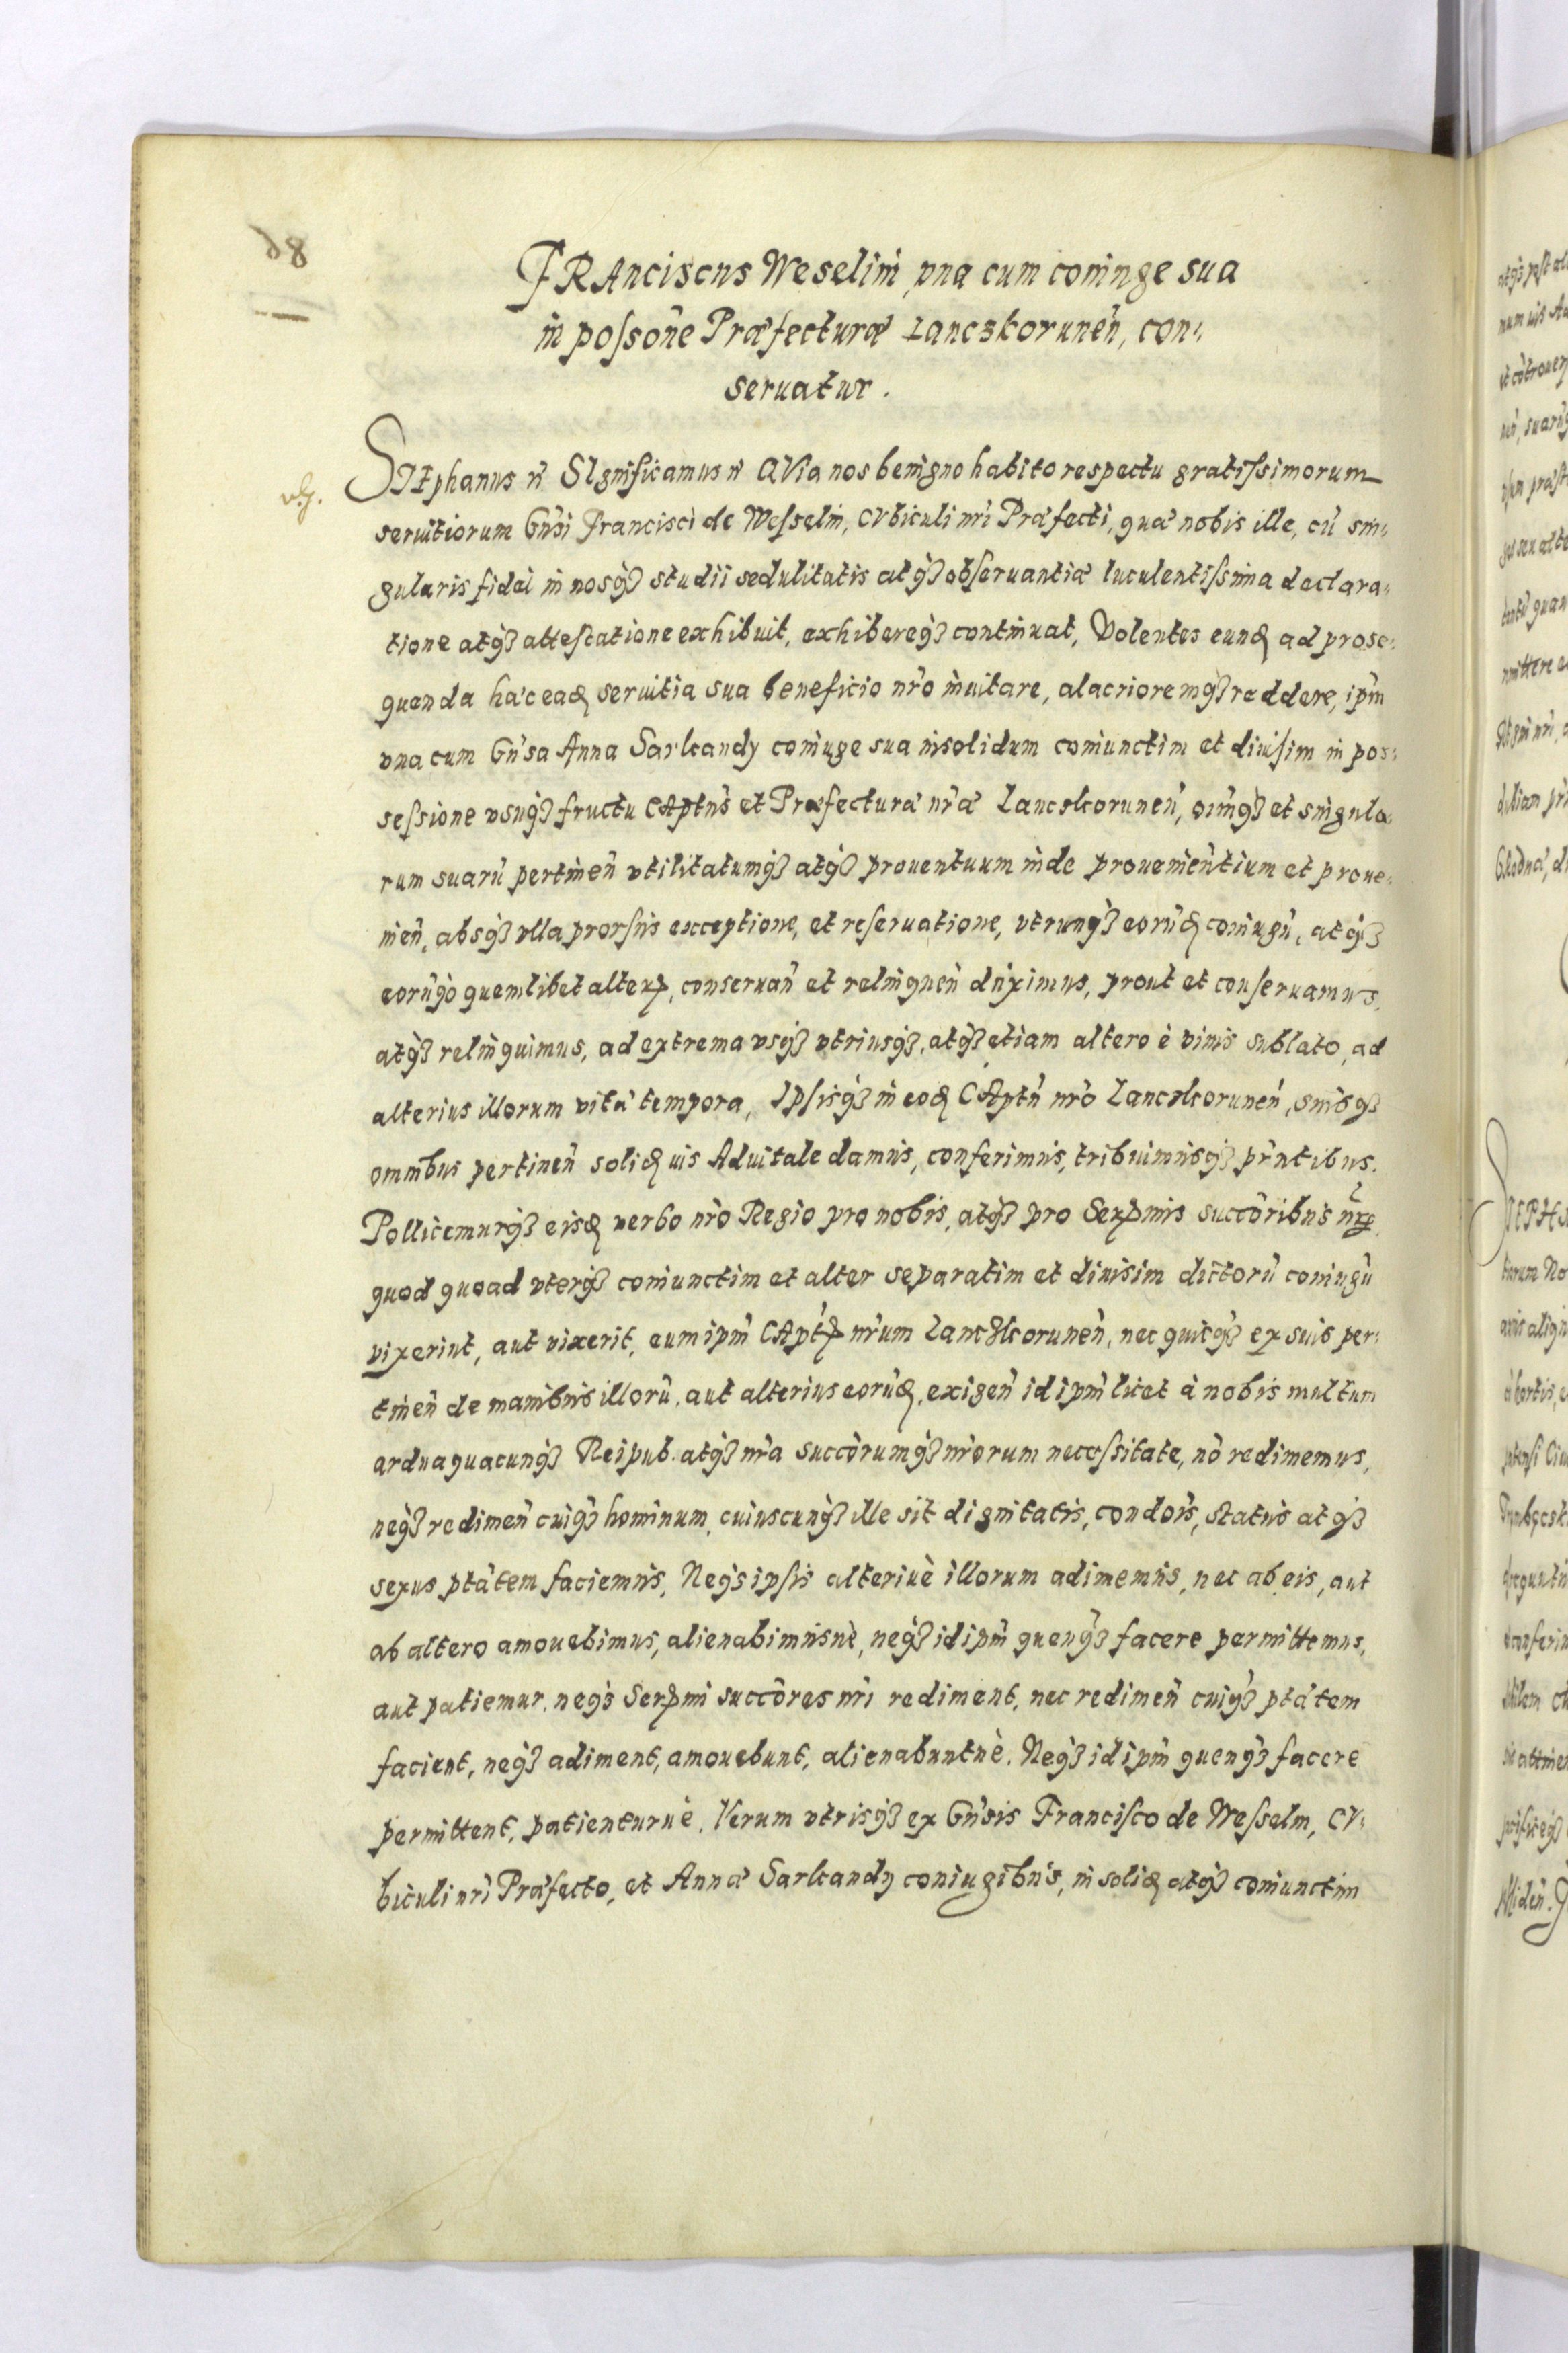 68
FRAnciscus Weselini, vna cum coniuge sua
in possone Præfecturæ Lanczkorunen, con-
seruatur.
STEphanus etc SIgnificamus etc QVia nos benigno habito respectu gratissimorum
seruitiorum Gnsi Francisci de Wesselin, CVbiculi nri Præfecti, quæ nobis ille, cũ sin-
gularis fidei in nosq̃ studii sedulitatis atq̃ obseruantiæ luculentissima declara-
tione atq̃ attestatione exhibuit, exhibereq̃ continuat, Volentes eund ad prose-
quenda hæc ead seruitia sua beneficio nro inuitare, alacrioremq̃ reddere, ipm
vna cum Gnsa Anna Sarkandy coniuge sua insolidum coniunctim et diuisim in pos-
sessione vsuq̃ fructu CAptns et Præfecturæ nræ Lanczkorunen, oimq̃ et singula-
rum suarũ pertinen vtilitatumq̃ atq̃ prouentuum inde prouenientium et proue-
nien, absq̃ vlla prorsus exceptione, et reseruatione, vtrunq̃ eorũd coniugũ, atq̃
eorũq̃ quemlibet alterp, conseruan et relinquen duximus, prout et conseruamus,
atq̃ relinquimus, ad extrema vsq̃ vtriusq̃, atq̃ etiam altero è viuis sublato, ad
alterius illorum vitæ tempora, Ipsisq̃ in eod CAptn nro Lanczkorunen, suisq̃
omnibus pertinen solid uis Aduitale damus, conferimus, tribuimusq̃ prntibus.
Pollicemurq̃ eisd verbo nro Regio pro nobis, atq̃ pro Serpmis succoribus nrp,
quod quoad vterq̃ coniunctim et alter separatim et diuisim dictorũ coniugũ
vixerint, aut vixerit, eum ipm CAptp nrum Lanczkorunen, nec quicq̃ ex suis per-
tinen de manibus illorũ, aut alterius eorũd, exigen id ipm licet à nobis multum
ardua quacunq̃ Reipub. atq̃ nra succorumq̃ nrorum necessitate, nõ redimemus,
neq̃ redimen cuiq̃ hominum, cuiuscunq̃ ille sit dignitatis, condois, status atq̃
sexus ptatem faciemus, Neq̃ ipsis alteriuè illorum adimemus, nec ab eis, aut
ab altero amouebimus, alienabimusuè, neq̃ id ipm quenq̃ facere permittemus,
aut patiemur, neq̃ Serpmi succores nri rediment, nec redimen cuiq̃ ptatem
facient, neq̃ adiment, amouebunt, alienabuntuè. Neq̃ id ipm quenq̃ facere
permittent, patienturuè. Verum vtrisq̃ ex Gnsis Francisco de Wesselin, CV-
biculi nri Præfecto, et Annæ Sarkandy coniugibus, in solid atq̃ coniunctim